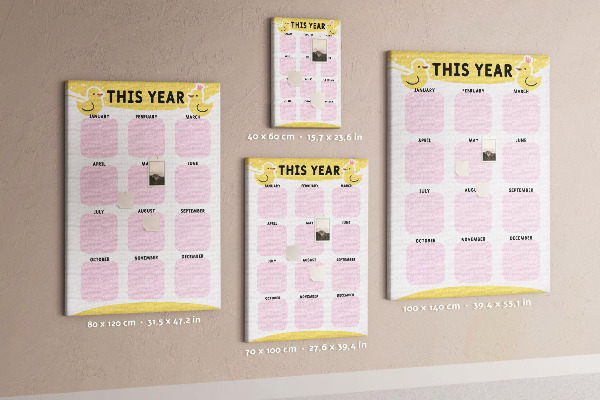 THIS YEAR
40 x 60 cm · 15,7 x 23,6 in
THIS YEAR
JANUARY FEBRUARY MARCH
APRIL MA JUNE
JULY AUGUST SEPTEMBER
OCTOBER NOVEMBER DECEMBER
80 x 120 cm · 31,5 x 47,2 in
THIS YEAR
JANUARY FEBRUARY MARCH
APRIL MAY JUNE
JULY AUGUST SEPTEMBER
OCTOBER NOVEMBER DECEMBER
70 x 100 cm · 27,6 x 39,4 in
THIS YEAR
JANUARY FEBRUARY MARCH
APRIL MAY JUNE
JULY AUGU SEPTEMBER
OCTOBER NOVEMBER DECEMBER
100 x 140 cm · 39,4 x 55,1 in